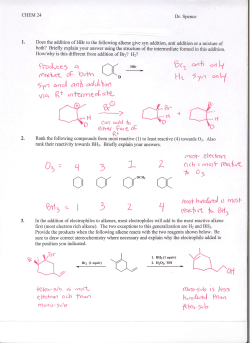 CHEM 24
Dr. Spence
1. Does the addition of HBr to the following alkene give syn addition, anti addition or a mixture of
both? Briefly explain your answer using the structure of the intermediate formed in this addition.
How/why is this different from addition of Br2? H2?
Produces a
mixture of both
syn and anti addition
via R+ intermediate
HBr
D
Br2 anti only
H2 syn only
Br⊖
can add to
either face of
R+
H
D
+
Br
H
D
2. Rank the following compounds from most reactive (1) to least reactive (4) towards O3. Also
rank their reactivity towards BH3. Briefly explain your answers.
O3 = 4 3 1 2
most electron
rich = most reactive
to O3
OCH3
BH3 = 1 3 2 4
most hindered is most
reactive to BH3
3. In the addition of electrophiles to alkenes, most electrophiles will add to the most reactive alkene
first (most electron rich alkene). The two exceptions to this generalization are H2 and BH3.
Provide the products when the following alkene reacts with the two reagents shown below. Be
sure to draw correct stereochemistry where necessary and explain why the electrophile added to
the position you indicated.
Br
Br
Br2 (1 equiv)
1. BH3 (1 equiv)
2. H2O2, OH
OH
tetra-sub is more
electron rich than
mono-sub
mono-sub is less
hindered than
tetra-sub